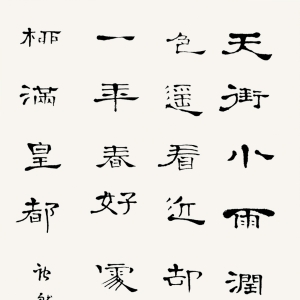 天街小雨潤
色遥看近却
一年春好處
栁滿皇都